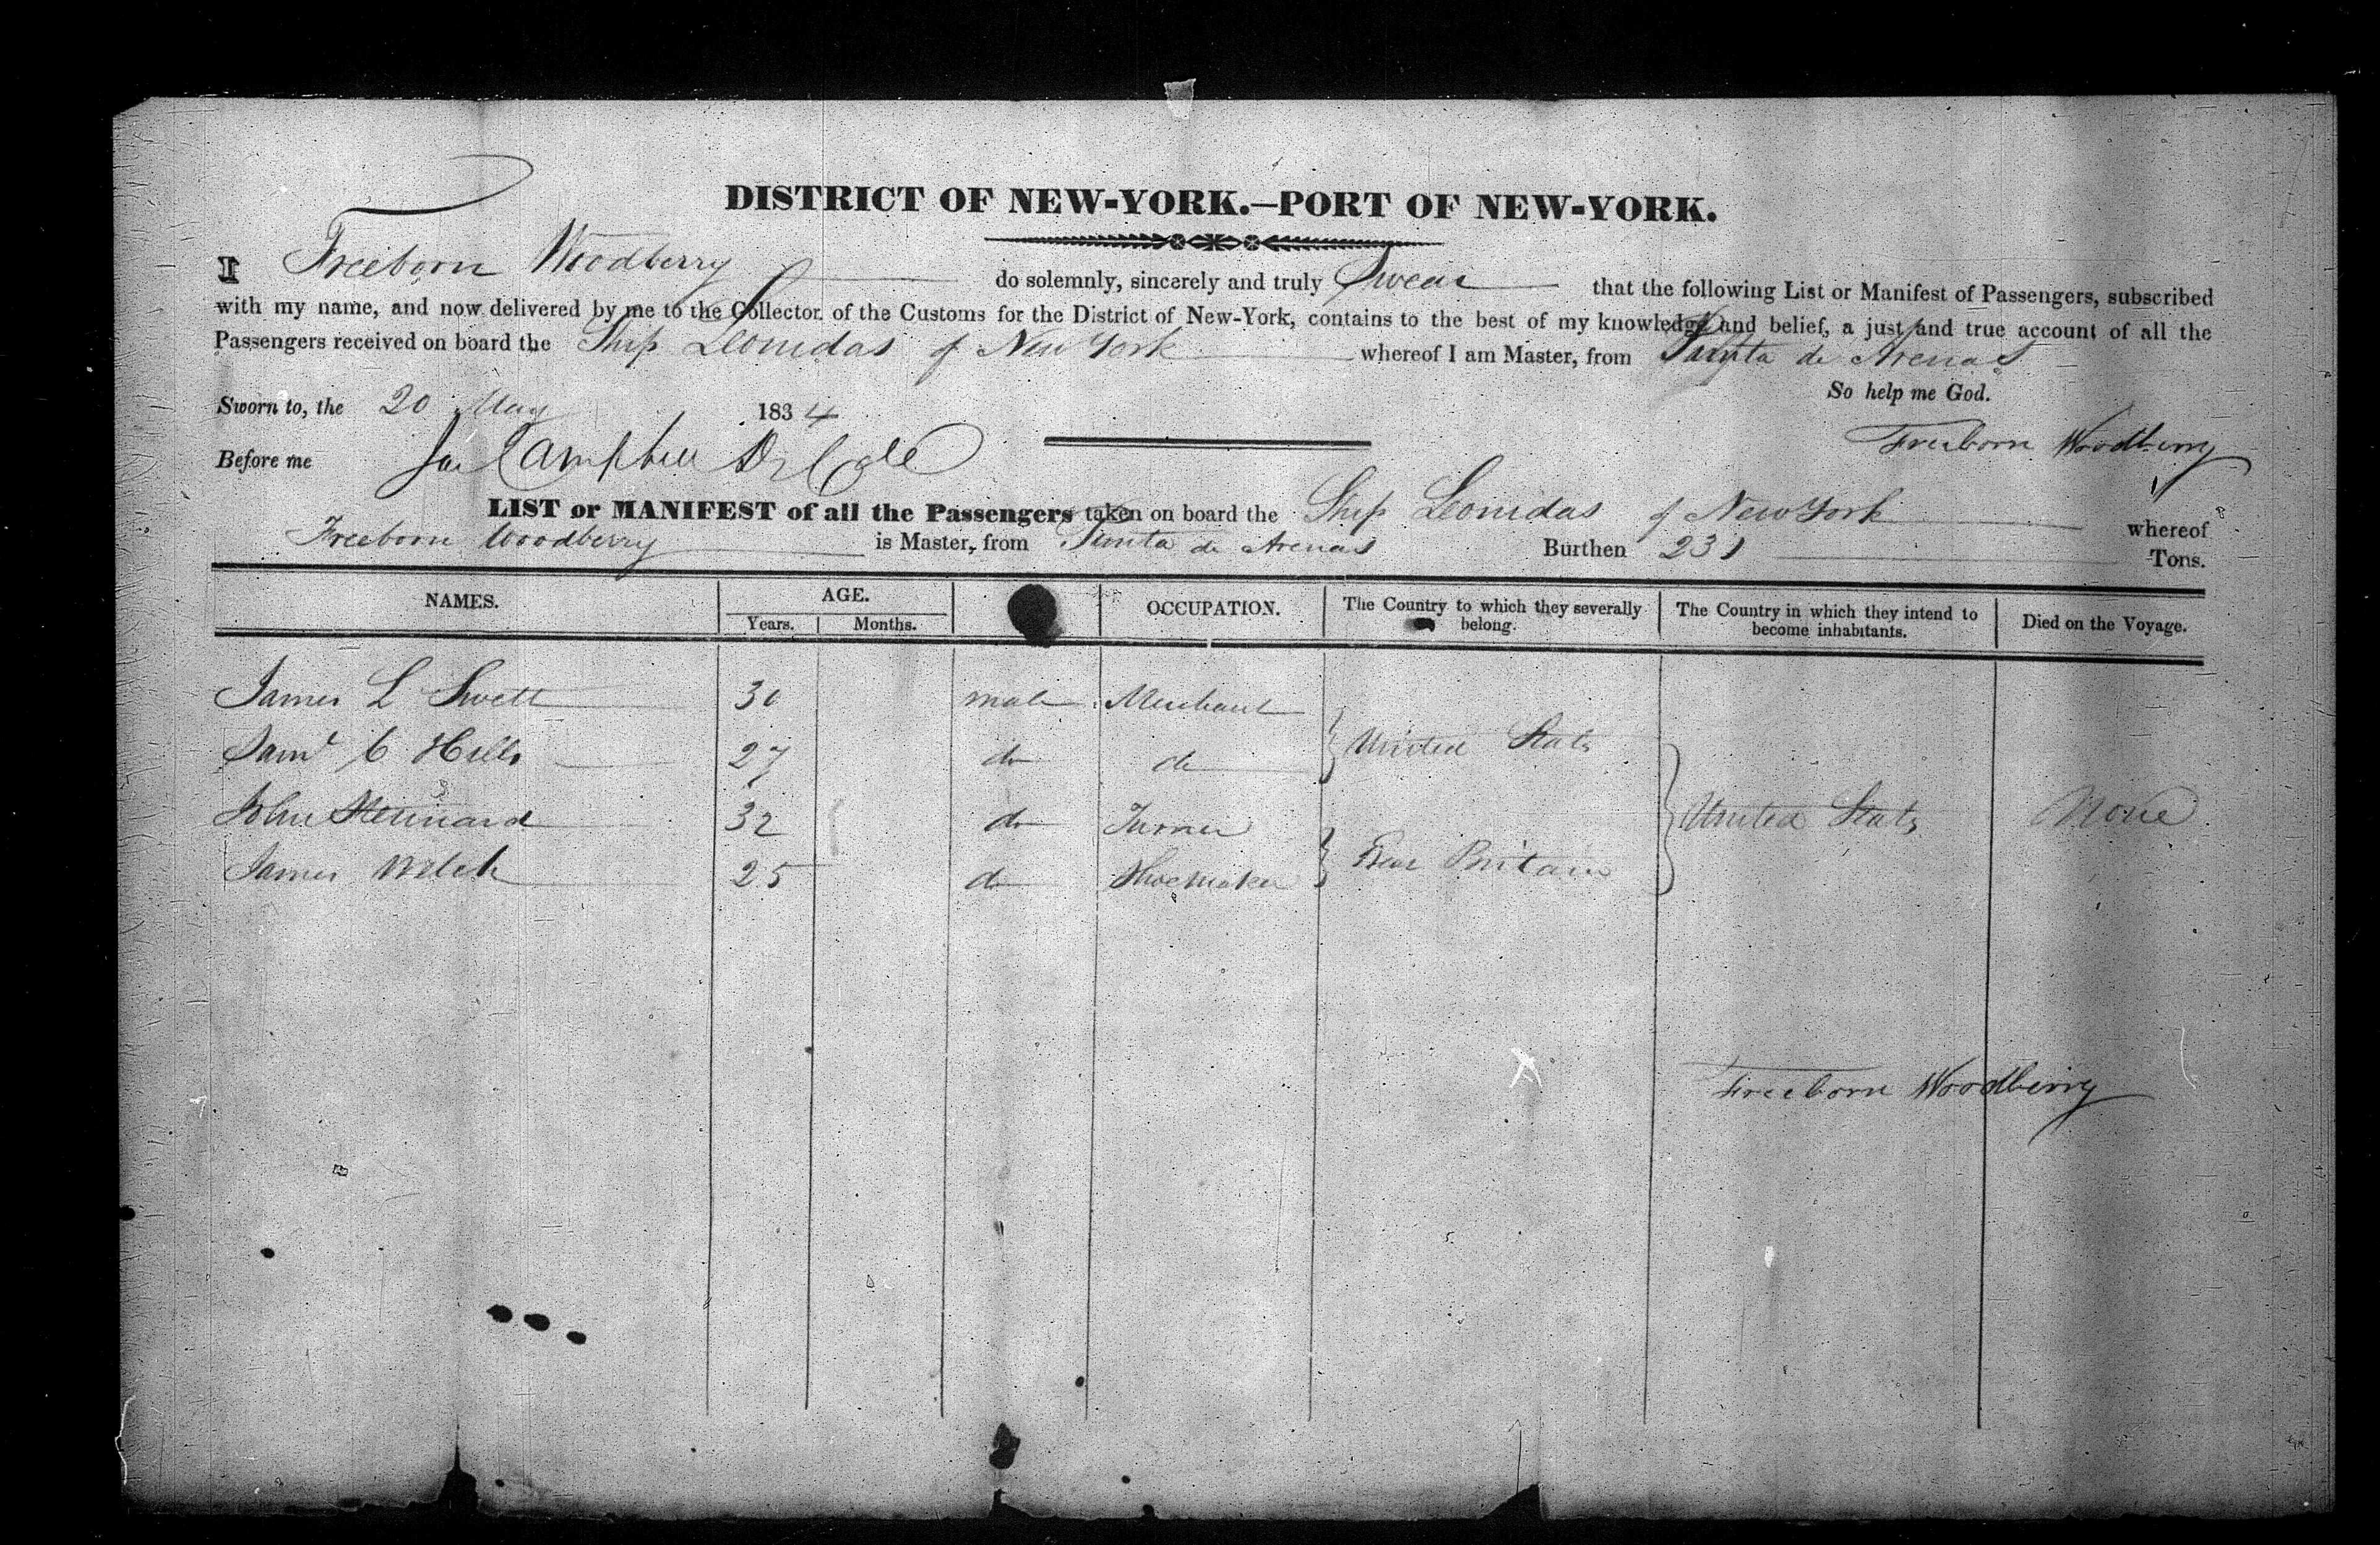 DISTRICT OF NEW-YORK.—PORT OF NEW-YORK.
I Freeborn Woodberry do solemnly, sincerely and truly Swear that the following List or Manifest of Passengers, subscribed
with my name, and now delivered by me to the Collector of the Customs for the District of New-York, contains to the best of my knowledge and belief, a just and true account of all the
Passengers received on board the Ship Leonidas of New York whereof I am Master, from Punta de Arenas
So help me God.
Sworn to, the 20 May 1834
Freeborn Woodberry
Before me Campbell
LIST or MANIFEST of all the Passengers taken on board the Ship Leonidas of New York whereof
Freeborn Woodberry is Master, from Punta de Arenas Burthen 231 Tons.
NAMES. AGE. OCCUPATION. The Country to which they severally belong. The Country in which they intend to become inhabitants. Died on the Voyage.
Years. Months.
James L Swett 30 male Merchant
Saml C Hills 27 do do United States
John 32 do Turner United States None
James Welch 25 do Shoemaker Great Britain
Freeborn Woodberry